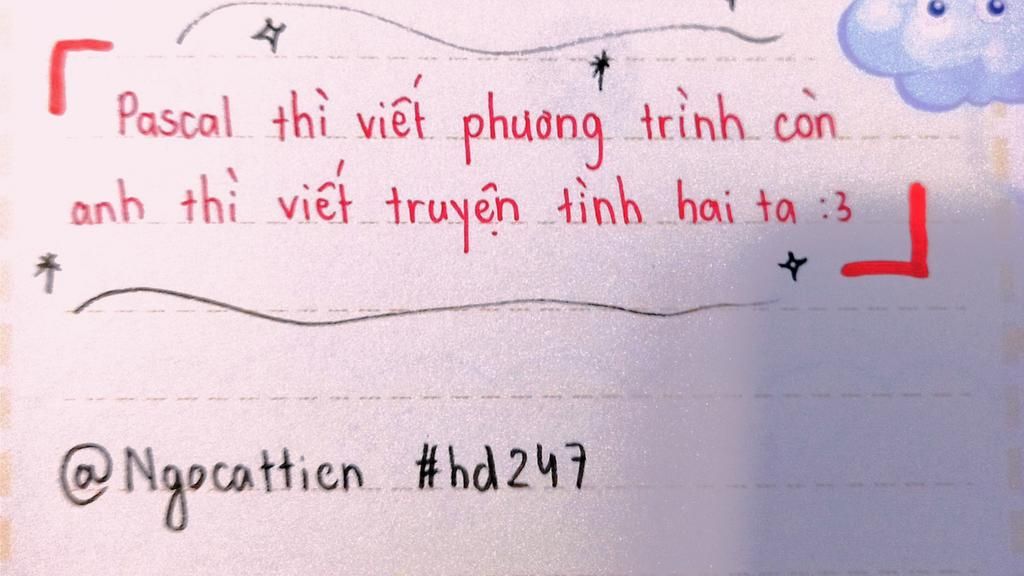 Pascal thì viết phương trình còn
anh thì viết truyện tình hai ta :3
@Ngocattien #hd247